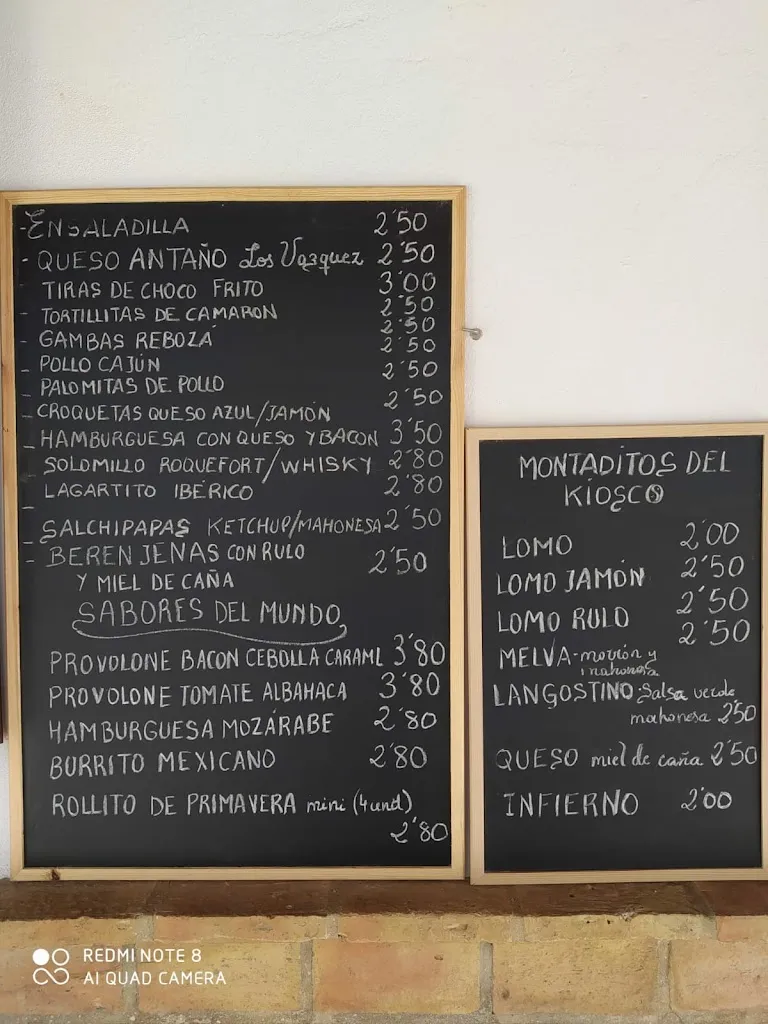 - ENSALADILLA 2'50
- QUESO ANTAÑO Los Vazquez 2'50
TIRAS DE CHOCO FRITO 3'00
- TORTILLITAS DE CAMARON 2'50
- GAMBAS REBOZÁ 2'50
- POLLO CAJÚN 2'50
- PALOMITAS DE POLLO 2'50
- CROQUETAS QUESO AZUL/JAMÓN 2'50
- HAMBURGUESA CON QUESO Y BACON 3'50
- SOLOMILLO ROQUEFORT/WHISKY 2'80
- LAGARTITO IBÉRICO 2'80
- SALCHIPAPAS KETCHUP/MAHONESA 2'50
- BERENJENAS CON RULO 2'50
Y MIEL DE CAÑA
SABORES DEL MUNDO
PROVOLONE BACON CEBOLLA CARAML 3'80
PROVOLONE TOMATE ALBAHACA 3'80
HAMBURGUESA MOZÁRABE 2'80
BURRITO MEXICANO 2'80
ROLLITO DE PRIMAVERA mini (4und)
2'80
MONTADITOS DEL
KIOSCO
LOMO 2'00
LOMO JAMÓN 2'50
LOMO RULO 2'50
MELVA-morrón y 2'50
mahonesa
LANGOSTINO-Salsa verde
mahonesa 2'50
QUESO miel de caña 2'50
INFIERNO 2'00
REDMI NOTE 8
AI QUAD CAMERA